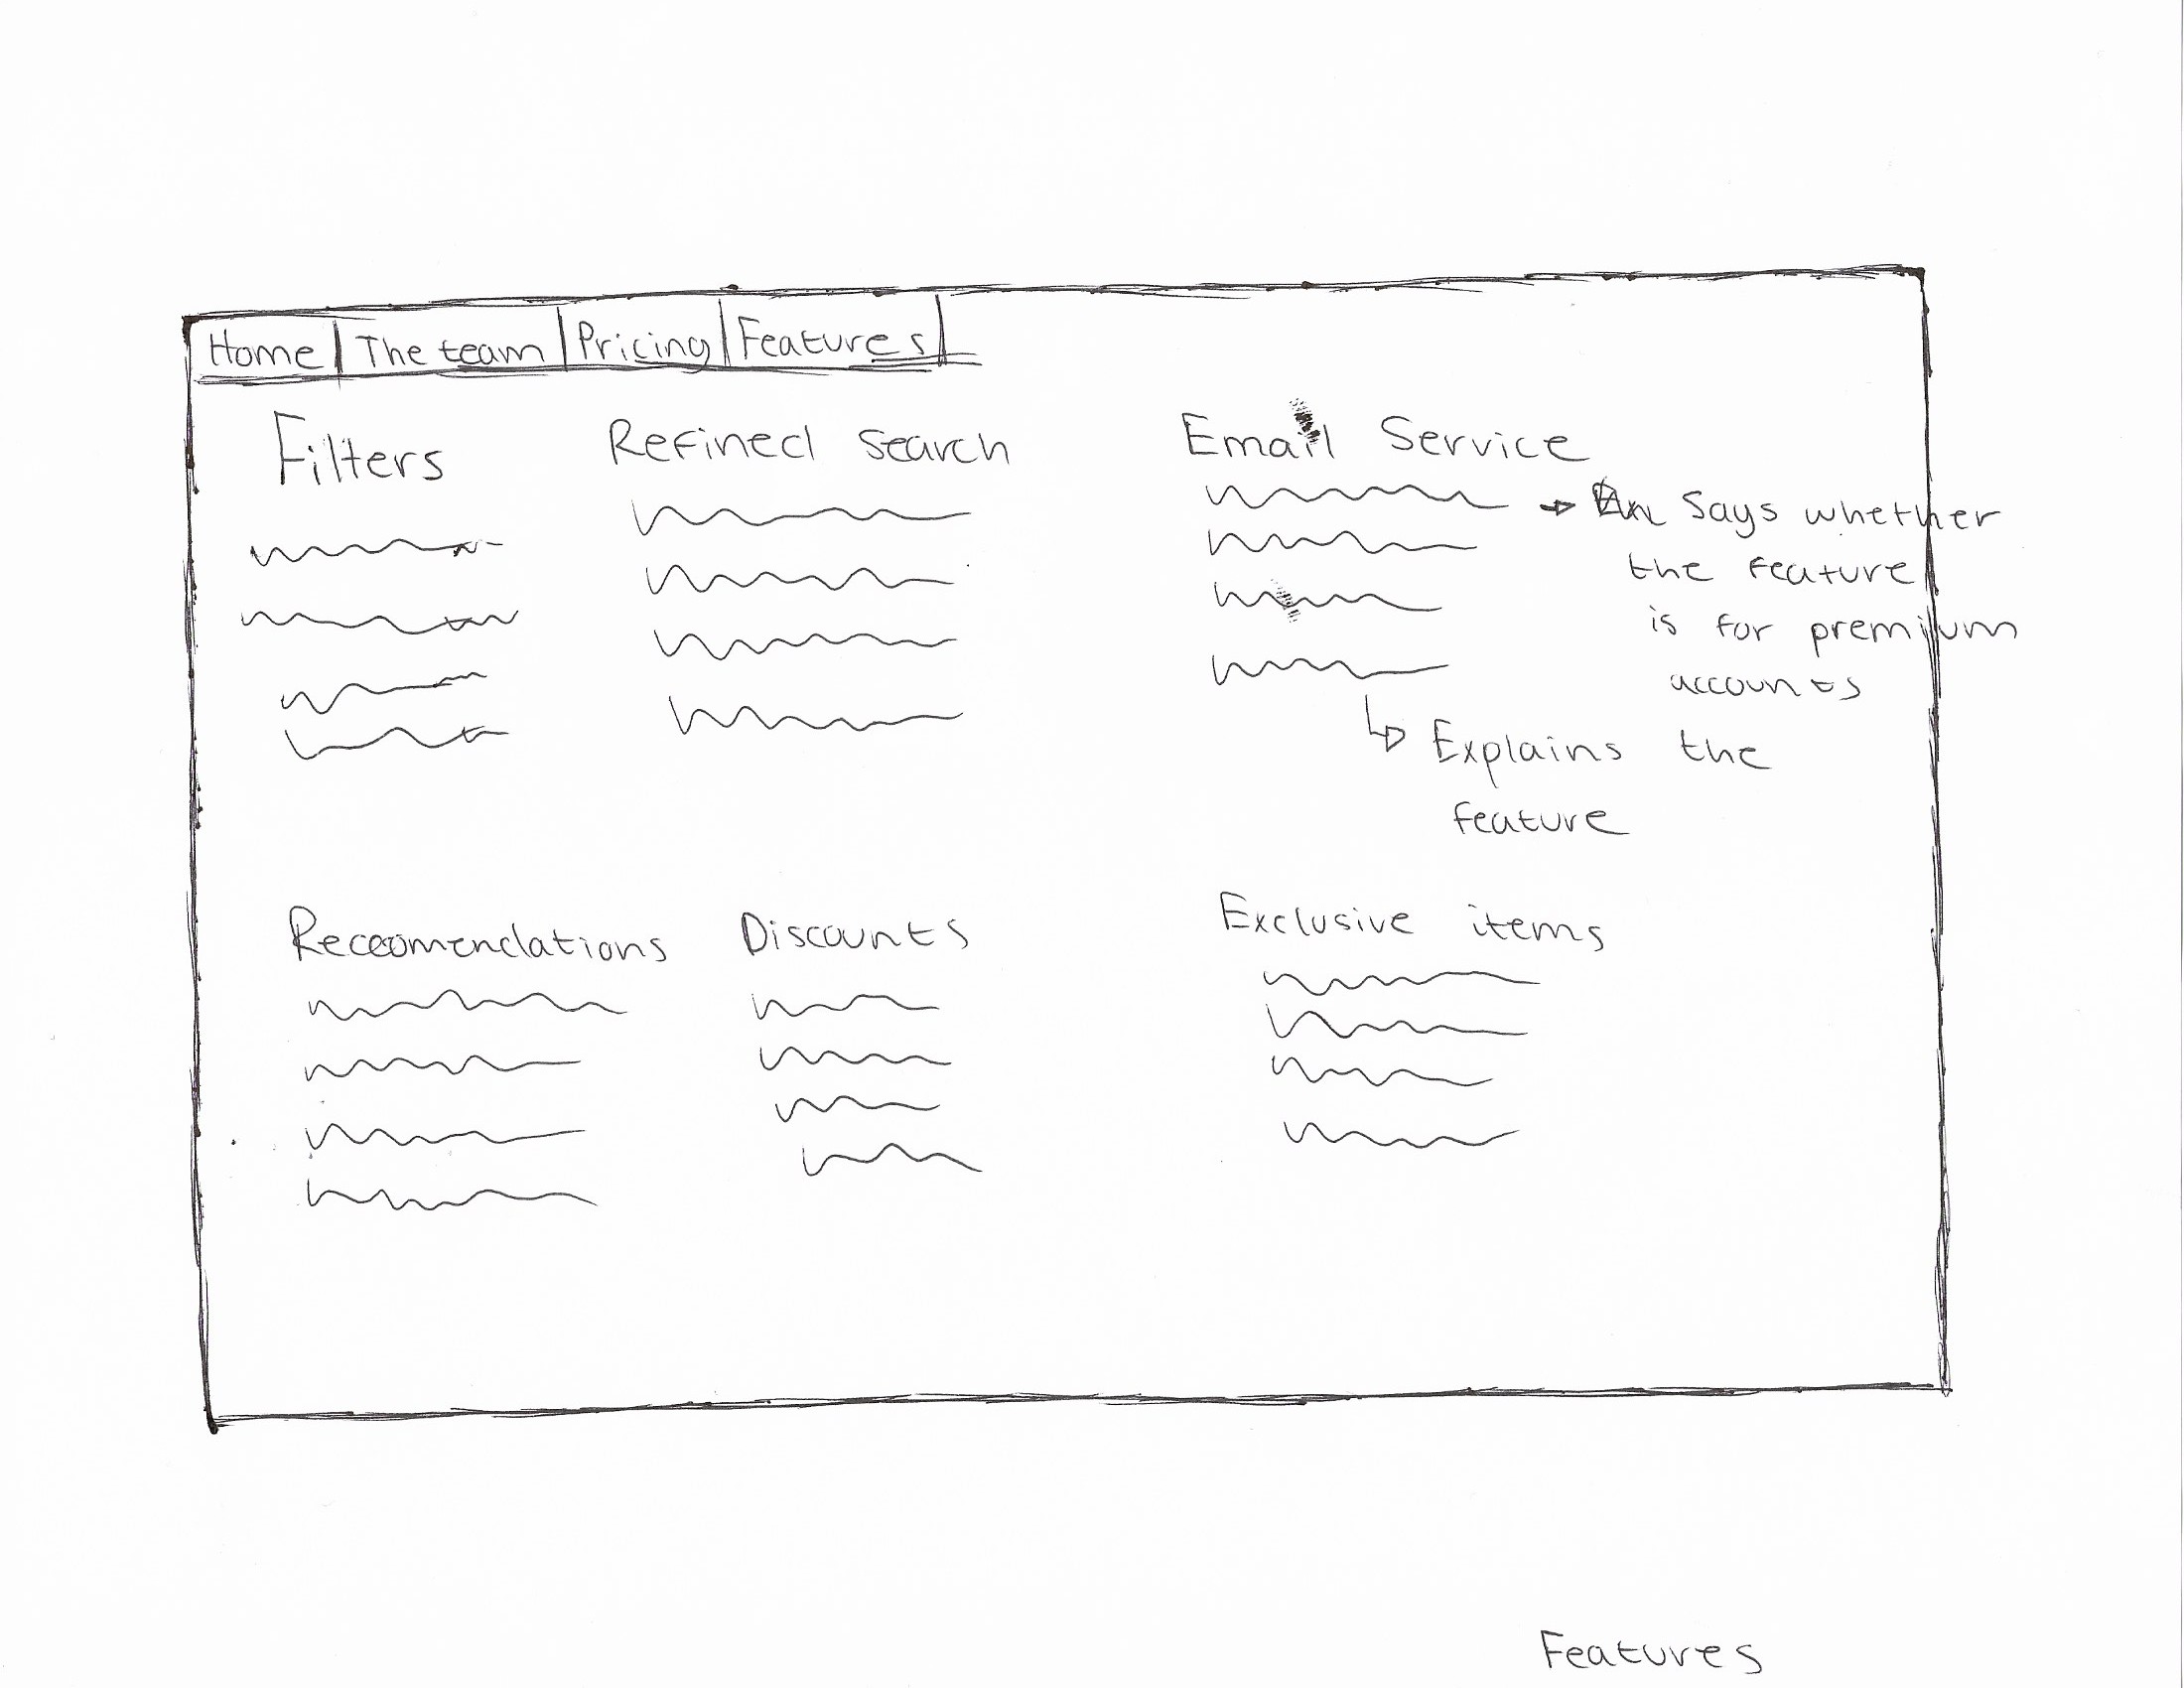 Home The team Pricing Features
Filters
Refined search
Email Service
Says whether
the feature
is for premium
accounts
Explains the
feature
Reccomendations
Discounts
Exclusive items
Features